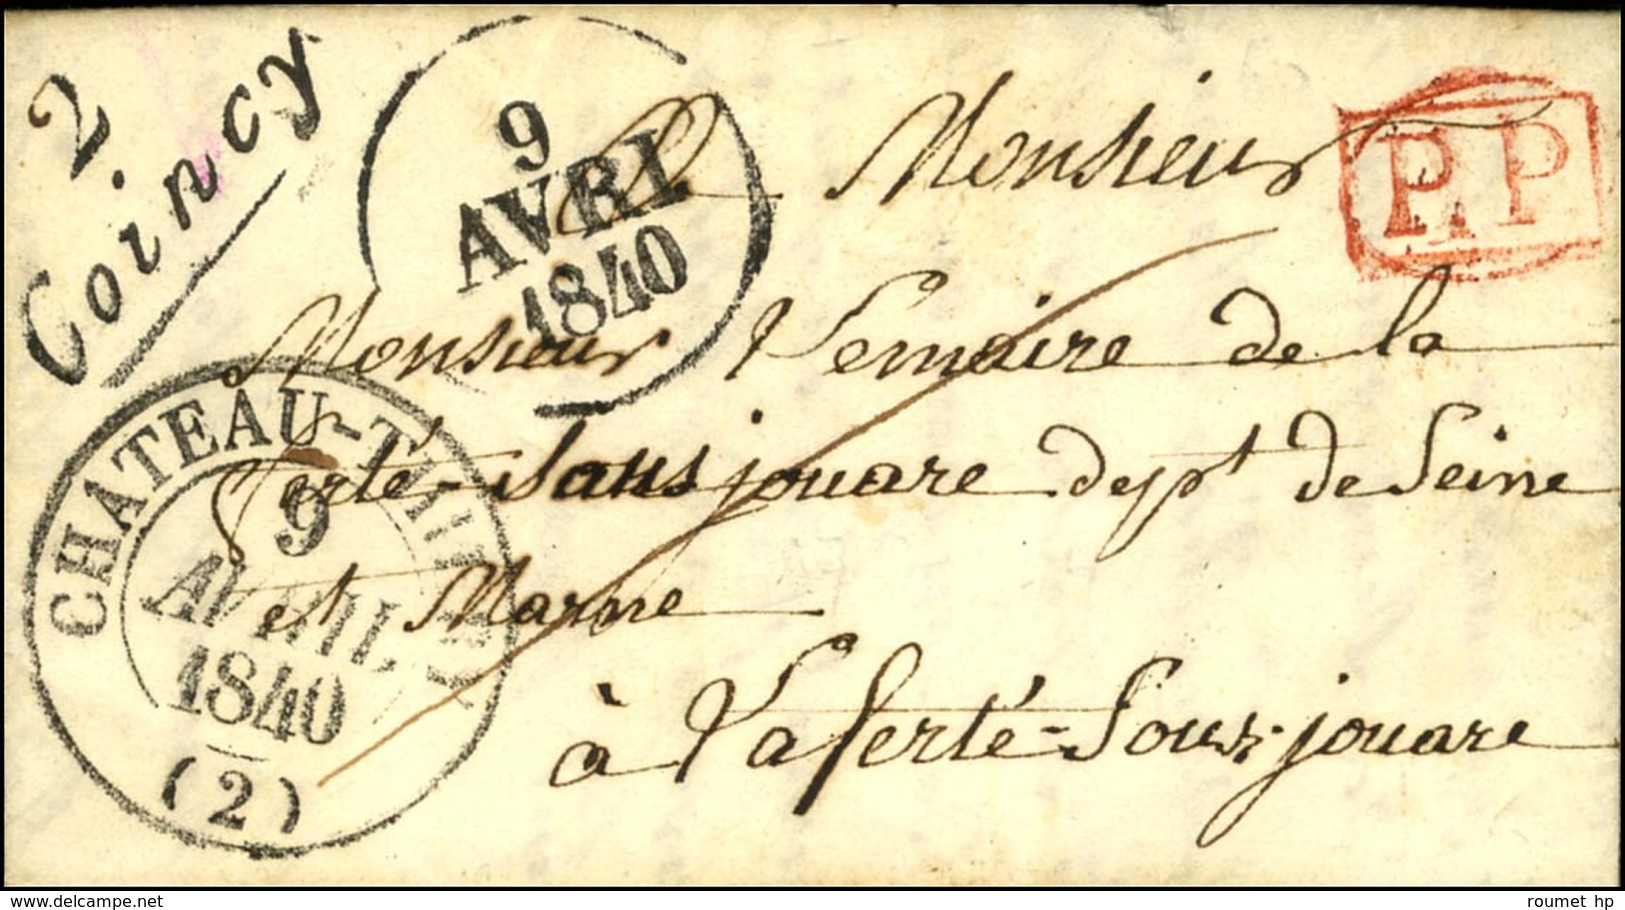 2
Coincy
9
AVRI
1840
P.P
A Monsieur
Monsieur Lemaire de la
ferté-sous jouare dept de Seine
et Marne
à Laferté-Sous-jouare
CHATEAU-THIERRY
9
AVRIL
1840
(2)
roumet hp
www.delcampe.net